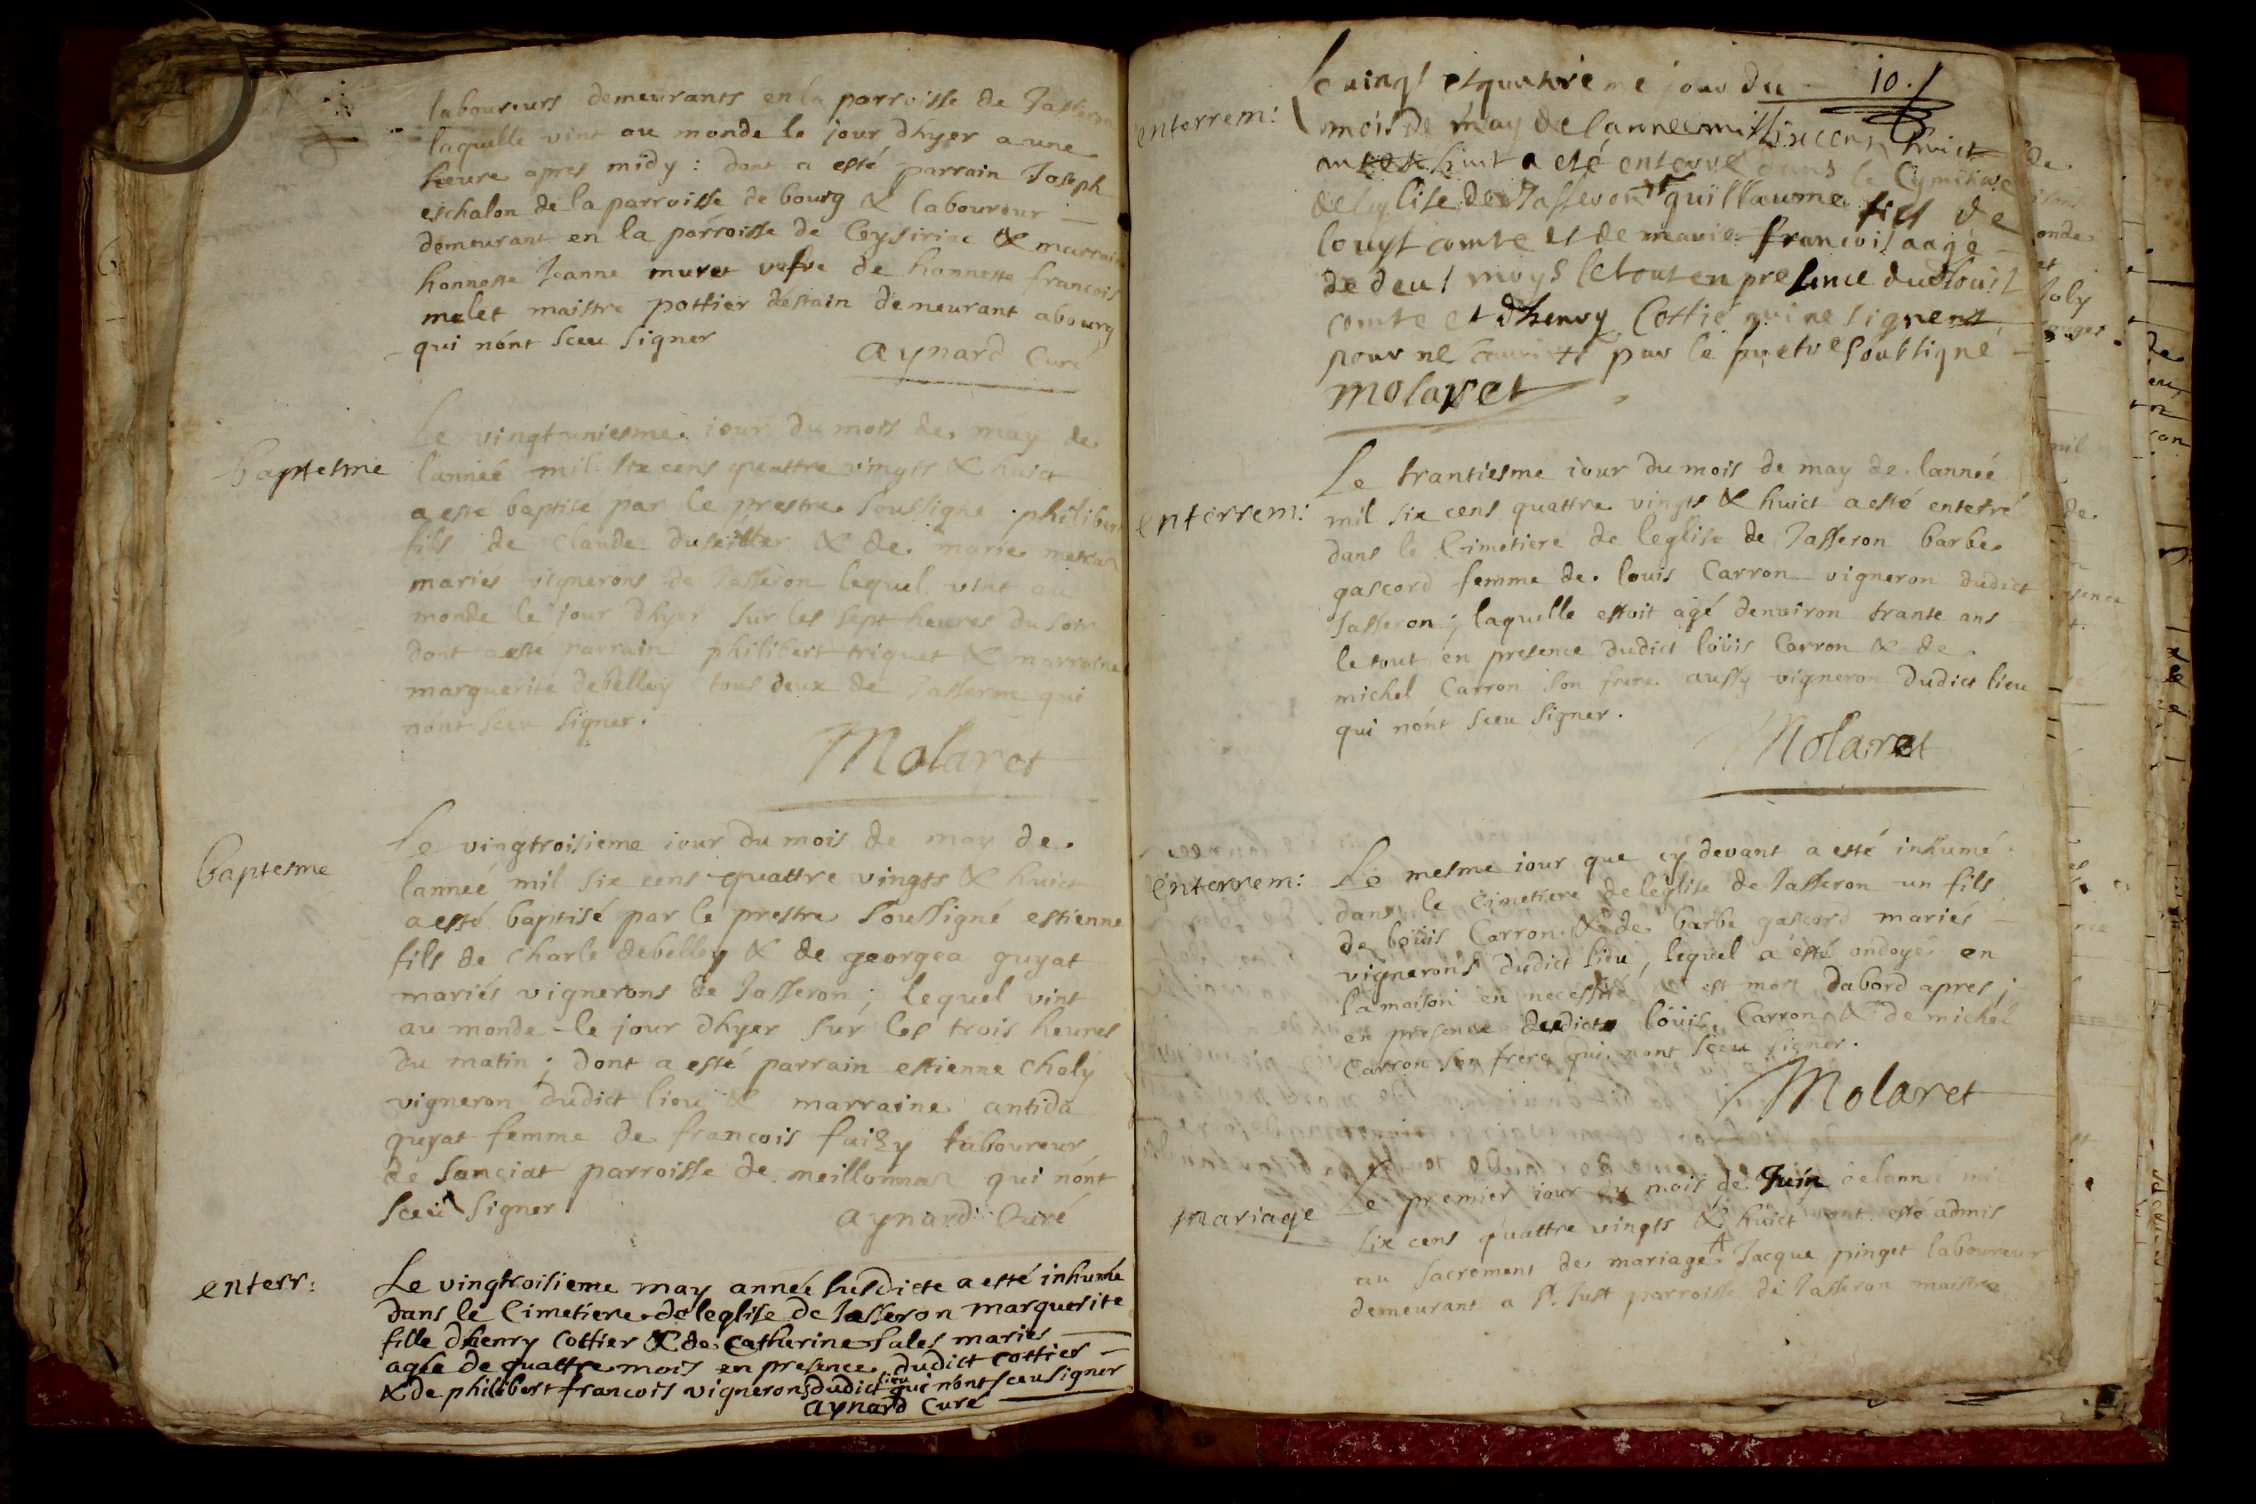 laboureurs demeurants en la parroisse de Jasseron
laquelle vint au monde le jour dhyer a une
heure apres midy : dont a esté parrain Joseph
eschalon de la parroisse de bourg & laboureur
demeurant en la parroisse de Ceysiriac & marraine
honneste Jeanne muret vefve de honneste francois
malet maistre pottier destain demeurant a bourg
qui nónt sceu signer
aynard Curé
baptesme
Le vingtuniesme iour du mois de may de
lanneé mil six cens quattre vingts & huict
a esté baptisé par le prestre soussigné philibert
fils de Claude & de marie
mariés vignerons de Jasseron lequel vint au
monde le jour dhyer sur les sept heures du soir
dont a esté parrain philibert triquet & marraine
marguerite debelley tous deux de Jasseron qui
nónt sceu signer.
Molaret
baptesme
Le vingtroisieme iour du mois de may de
lanneé mil six cens quattre vingts & huict
a esté baptisé par le prestre soussigné estienne
fils de Charle debelley & de georgea guyat
mariés vignerons de Jasseron ; lequel vint
au monde le jour dhyer sur les trois heures
du matin ; dont a esté parrain estienne Choly
vigneron dudict lieu & marraine antida
guyat femme de francois faizy laboureur
de sanciat parroisse de meillonnas qui nónt
sceu signer
aynard Curé
enterr:
Le vingtroisieme may anneé susdicte a esté inhumé
dans le Cimetiere de leglise de Jasseron marguerite
fille dhenry Cottier & de Catherine sales mariés
ageé de quattre mois en presence dudict Cottier
& de philibert francois vignerons dudict lieu qui nónt sceu signer
aynard Curé
10.
enterrem:
Le vingt et quatrieme jour du
mois de may de lannee mil six cens huict
huit a eté enterré dans le Cymitiere
de leglise de Jasseron guillaume fils de
louys comte et de marie francois aagé
de deus moys le tout en presence dud louis
comte et dhenry Cottié qui ne signent
pour ne par le prebtre soubsigné
Molaret
enterrem:
Le trantiesme iour du mois de may de lanneé
mil six cens quattre vingts & huict a esté enterré
dans le Cimetiere de leglise de Jasseron barbe
gascord femme de louis Carron vigneron dudict
Jasseron ; laquelle estoit agé denviron trante ans
le tout en presence dudict loüis Carron & de
michel Carron son frere aussy vigneron dudict lieu
qui nónt sceu signer.
Molaret
enterrem:
Le mesme iour que cy devant a esté inhumé
dans le Cimetiere de leglise de Jasseron un fils
de loüis Carron & de barbe gascord mariés
vignerons dudict lieu, lequel a esté ondoyé en
la maison en necessité & est mort dabord apres ;
en presence dudict loüis Carron & de michel
Carron son frere qui nont sceu signer.
Molaret
mariage
Le premier iour du mois de Juin de lanné mil
six cens quattre vingts & huict ont esté admis
au sacrement de mariage Jacque pinget laboureur
demeurant a St. Just parroisse de Jasseron maistre